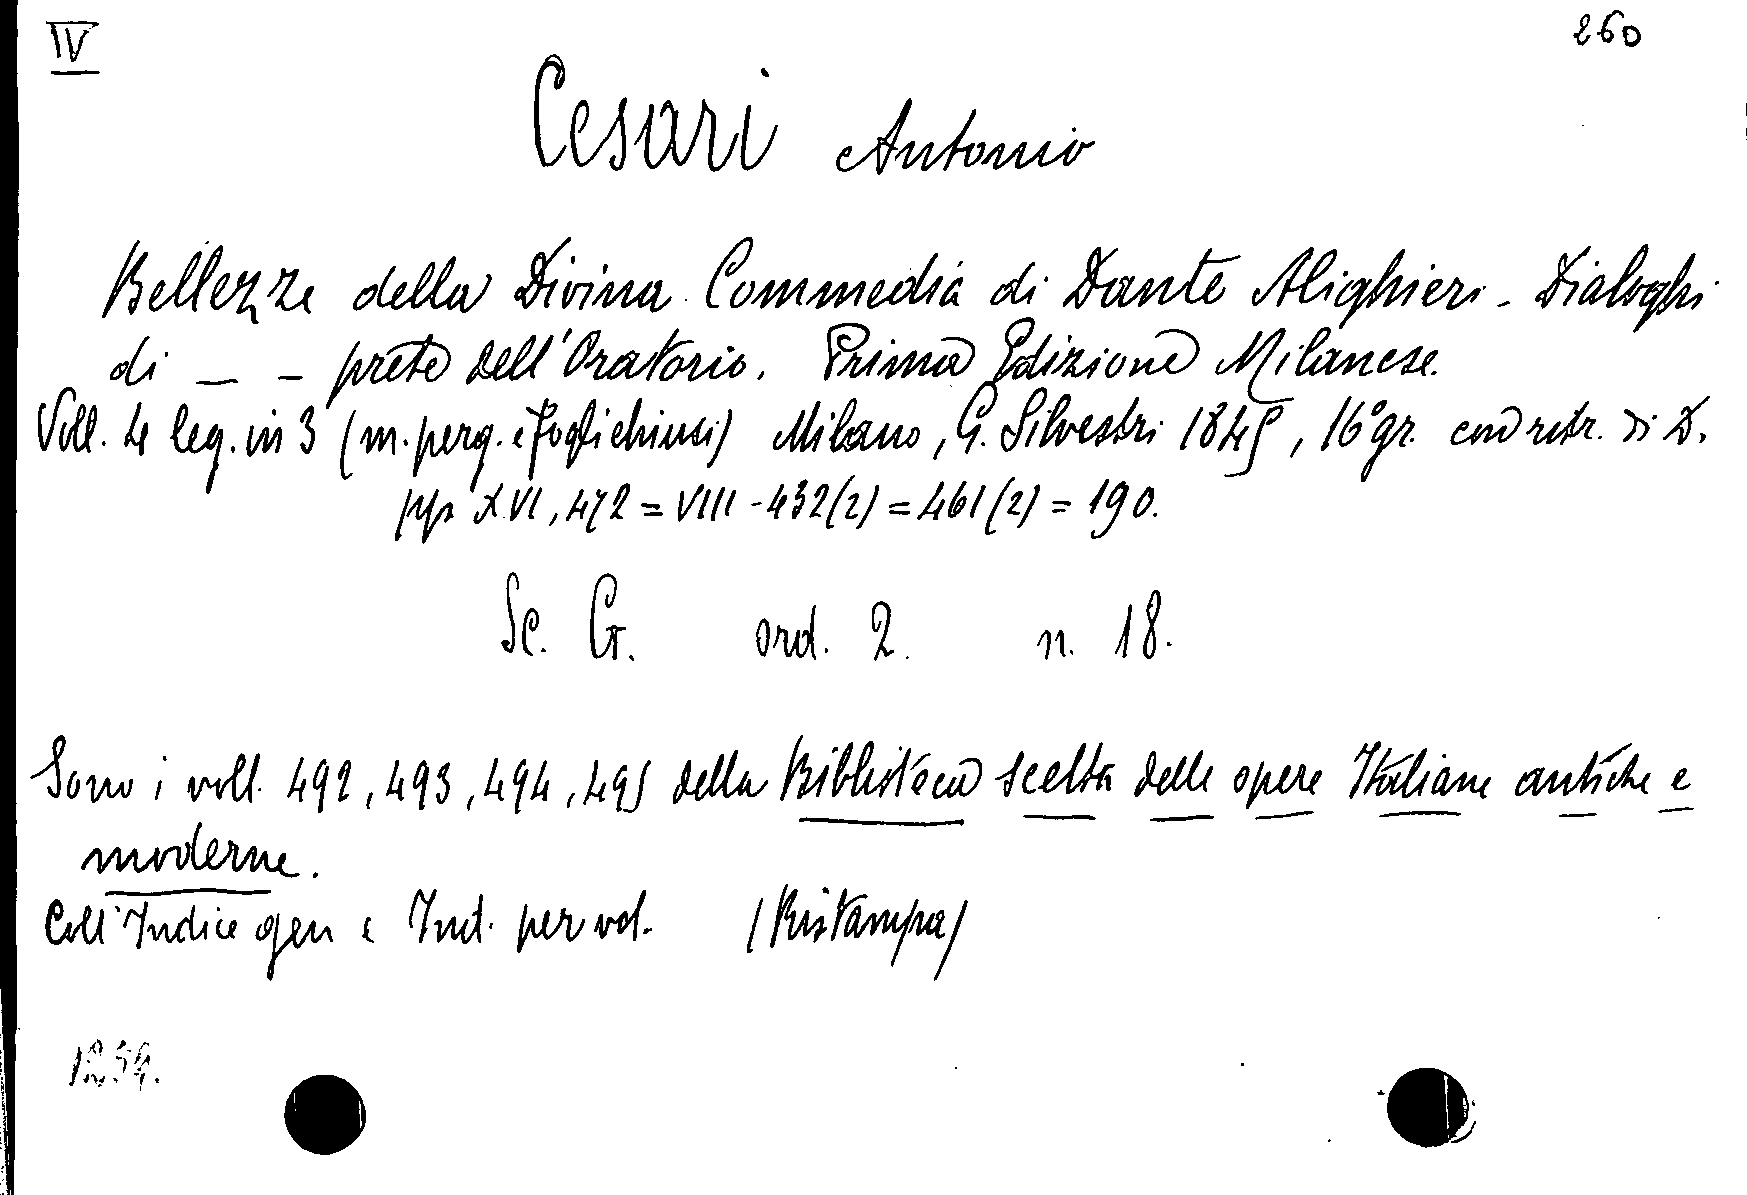 IV
260
Cesari Antonio
Bellezze della Divina Commedia di Dante Alighieri - Dialoghi
di _ _ prete dell'Oratorio. Prima Edizione Milanese.
Voll. 4 leg. in 3 (m. perg. e fogli chiusi) Milano, G. Silvestri 1845, 16° gr. con ritr. di D.
pp. XVI, 472 = VIII - 432 (2) = 461 (2) = 190.
Sc. G. ord. 2. n. 18.
Sono i voll. 492, 493, 494, 495 della Biblioteca scelta delle opere Italiane antiche e
moderne.
Coll'Indice gen e Ind. per vol. (Ristampa)